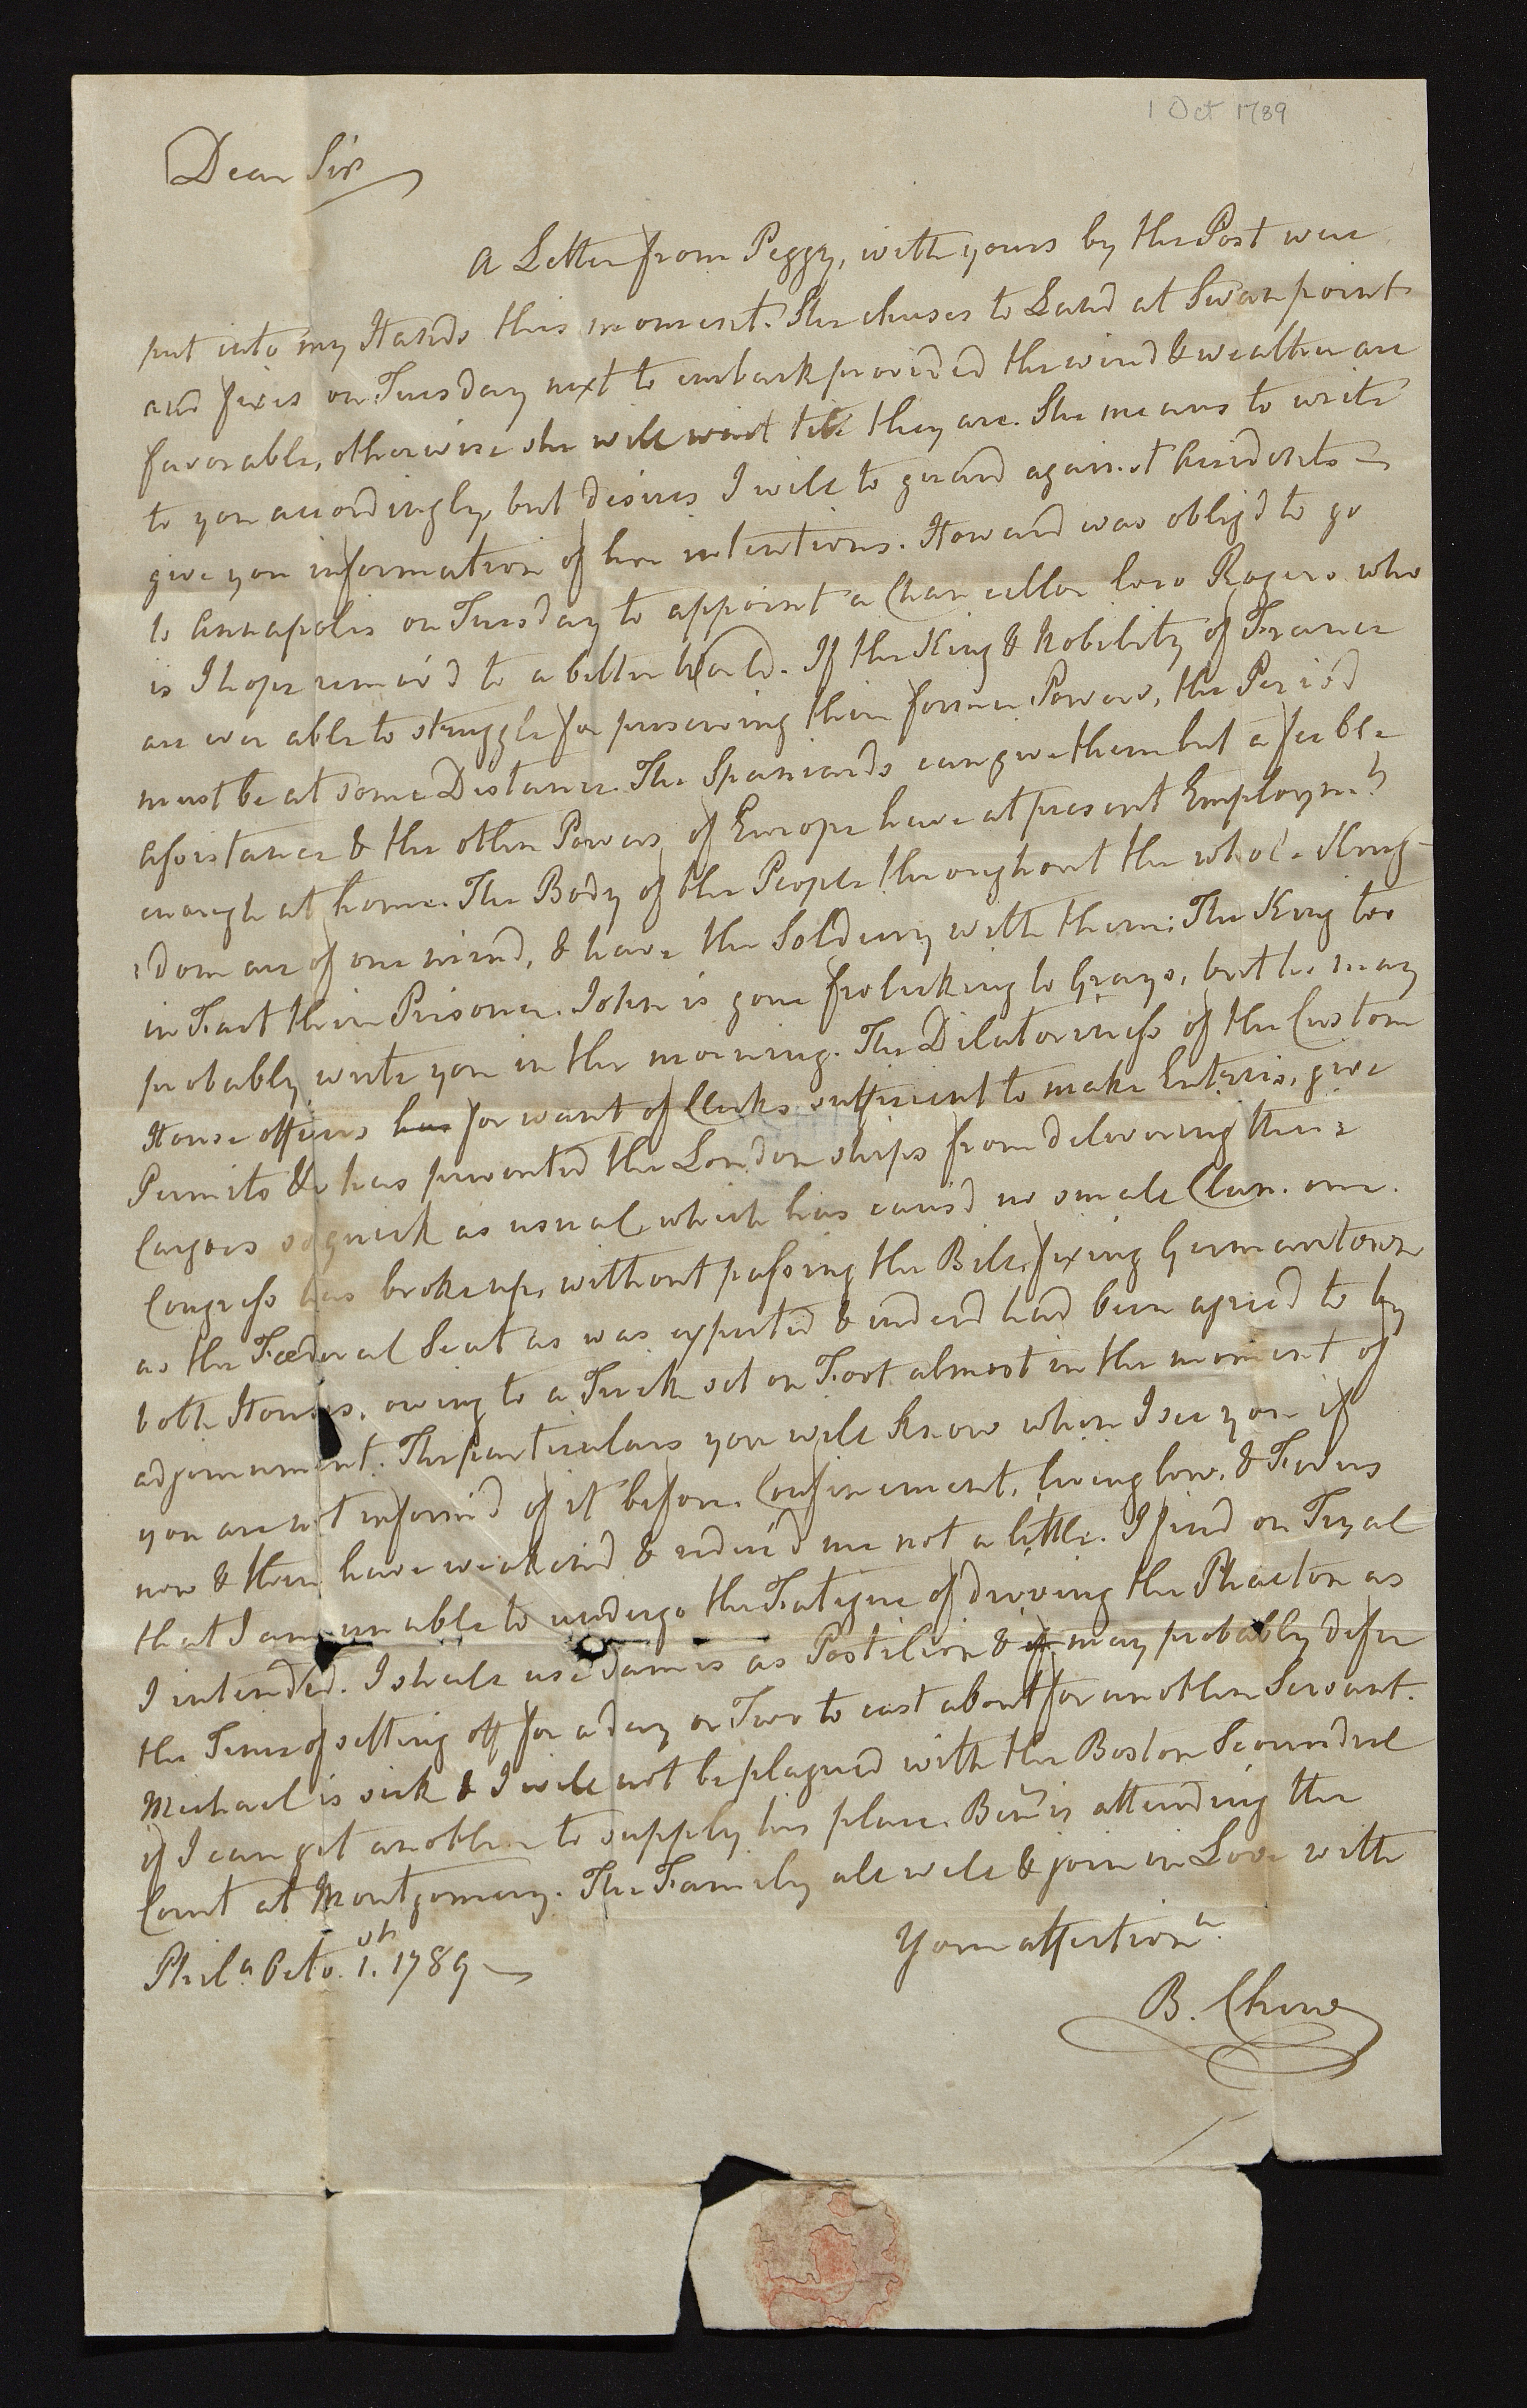 1 Oct 1789
Dear Sir
A Letter from Peggy, with yours by the Post were
put into my Hands this moment. She chuses to Land at Swan point
and fixes on Tuesday next to embark provided the wind & weather are
favorable, otherwise she will wait till they are. She means to write
to you accordingly, but desires I will to guard against Accidents
give you information of her intentions. Howard was oblig'd to go
to Annapolis on Tuesday to appoint a Chancellor loco Rogers who
is I hope remov'd to a better World. If the King & Nobility of France
are ever able to struggle for preserving their former Powers, the Period
must be at some Distance. The Spaniards can give them but a feeble
Assistance & the other Powers of Europe have at present Employmt.
enough at home. The Body of the People throughout the whole King-
dom are of one mind, & have the Soldiery with them: The King too
in Fact their Prisoner. John is gone frolicking to Grays, but he may
probably write you in the morning. The Dilatoriness of the Custom
House officers has for want of Clerks sufficient to make Enteries, give
Permits &c has prevented the London ships from delivering their
Cargoes so quick as usual which has caus'd no small Clam. our.
Congress has broke up, without passing the Bill fixing Germantown
as the Fœderal Seat as was expected & indeed had been agreed to by
both Houses, owing to a Trick set on Foot almost in the moment of
adjournment. The particulars you will know when I see you if
you are not inform'd of it before. Confinement, living low, & Fevers
now & then have weakened & reduc'd me not a little. I find on Tryal
that I am unable to undergo the Fatigue of driving the Phaeton as
I intended. I shall use James as Postilion & if may probably defer
the Time of setting off for a day or Two to cast about for another Servant.
Michael is sick & I will not be plagued with the Boston Scoundrel
if I can get another to supply his place. Benn. is attending the
Court at Montgomery. The Family all well & join in Love with
Your affectionte.
Phila. Octo. 1. 1789
B. Chew